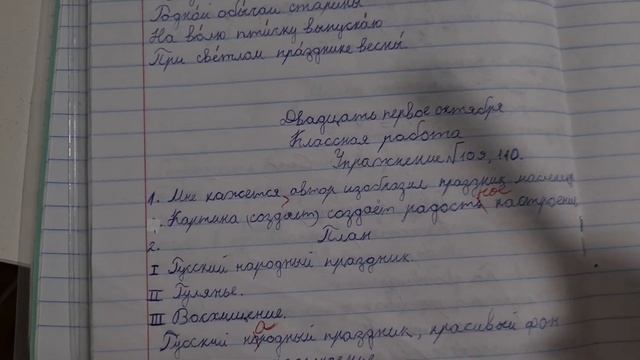 Родно́й обы́чай старины́
На во́лю пти́чку выпуска́ю
При све́тлом пра́зднике весны́
Двадцать первое октября
Классная работа
Упражнение №109, 110.
1. Мне кажется, автор изобразил праздник маслени
Картина (создает) создаёт радостное настроени
2. План
I Русский народный праздник.
II Гулянье.
III Восхищение.
Русский народный праздник, красивый фон